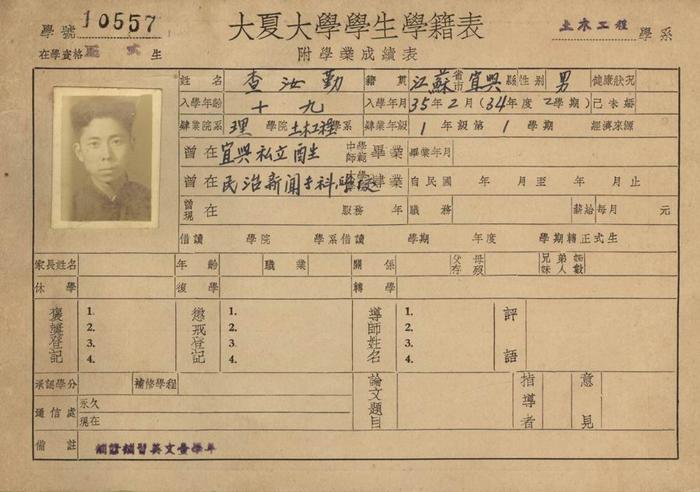 學號 10557
大夏大學學生學籍表
土木工程 學系
在學資格 正式 生
附學業成績表
姓名 查汝勤 籍貫 江蘇 省市 宜興 縣 性別 男 健康狀况
入學年齡 十九 入學年月 35年2月(34年度2學期) 已未婚
肄業院系 理 學院 土木工程 學系 肄業年級 1年級第1學期 經濟來源
曾在 宜興私立 中學師範 畢業 畢業年月
曾在 民治新聞專科學校 肄業 自民國 年 月至 年 月止
曾現在 服務 年 職務 薪給每月 元
借讀 學院 學系借讀 學期 年度 學期轉正式生
家長姓名 年齡 職業 關係 父母存歿 兄弟姊妹人數
休學 復學 轉學
褒獎登記 1. 2. 3. 4.
懲戒登記 1. 2. 3. 4.
導師姓名 1. 2. 3. 4.
評語
承認學分 補修學程
論文題目
指導者
意見
通信處 永久 現在
備註 補習英文壹學年